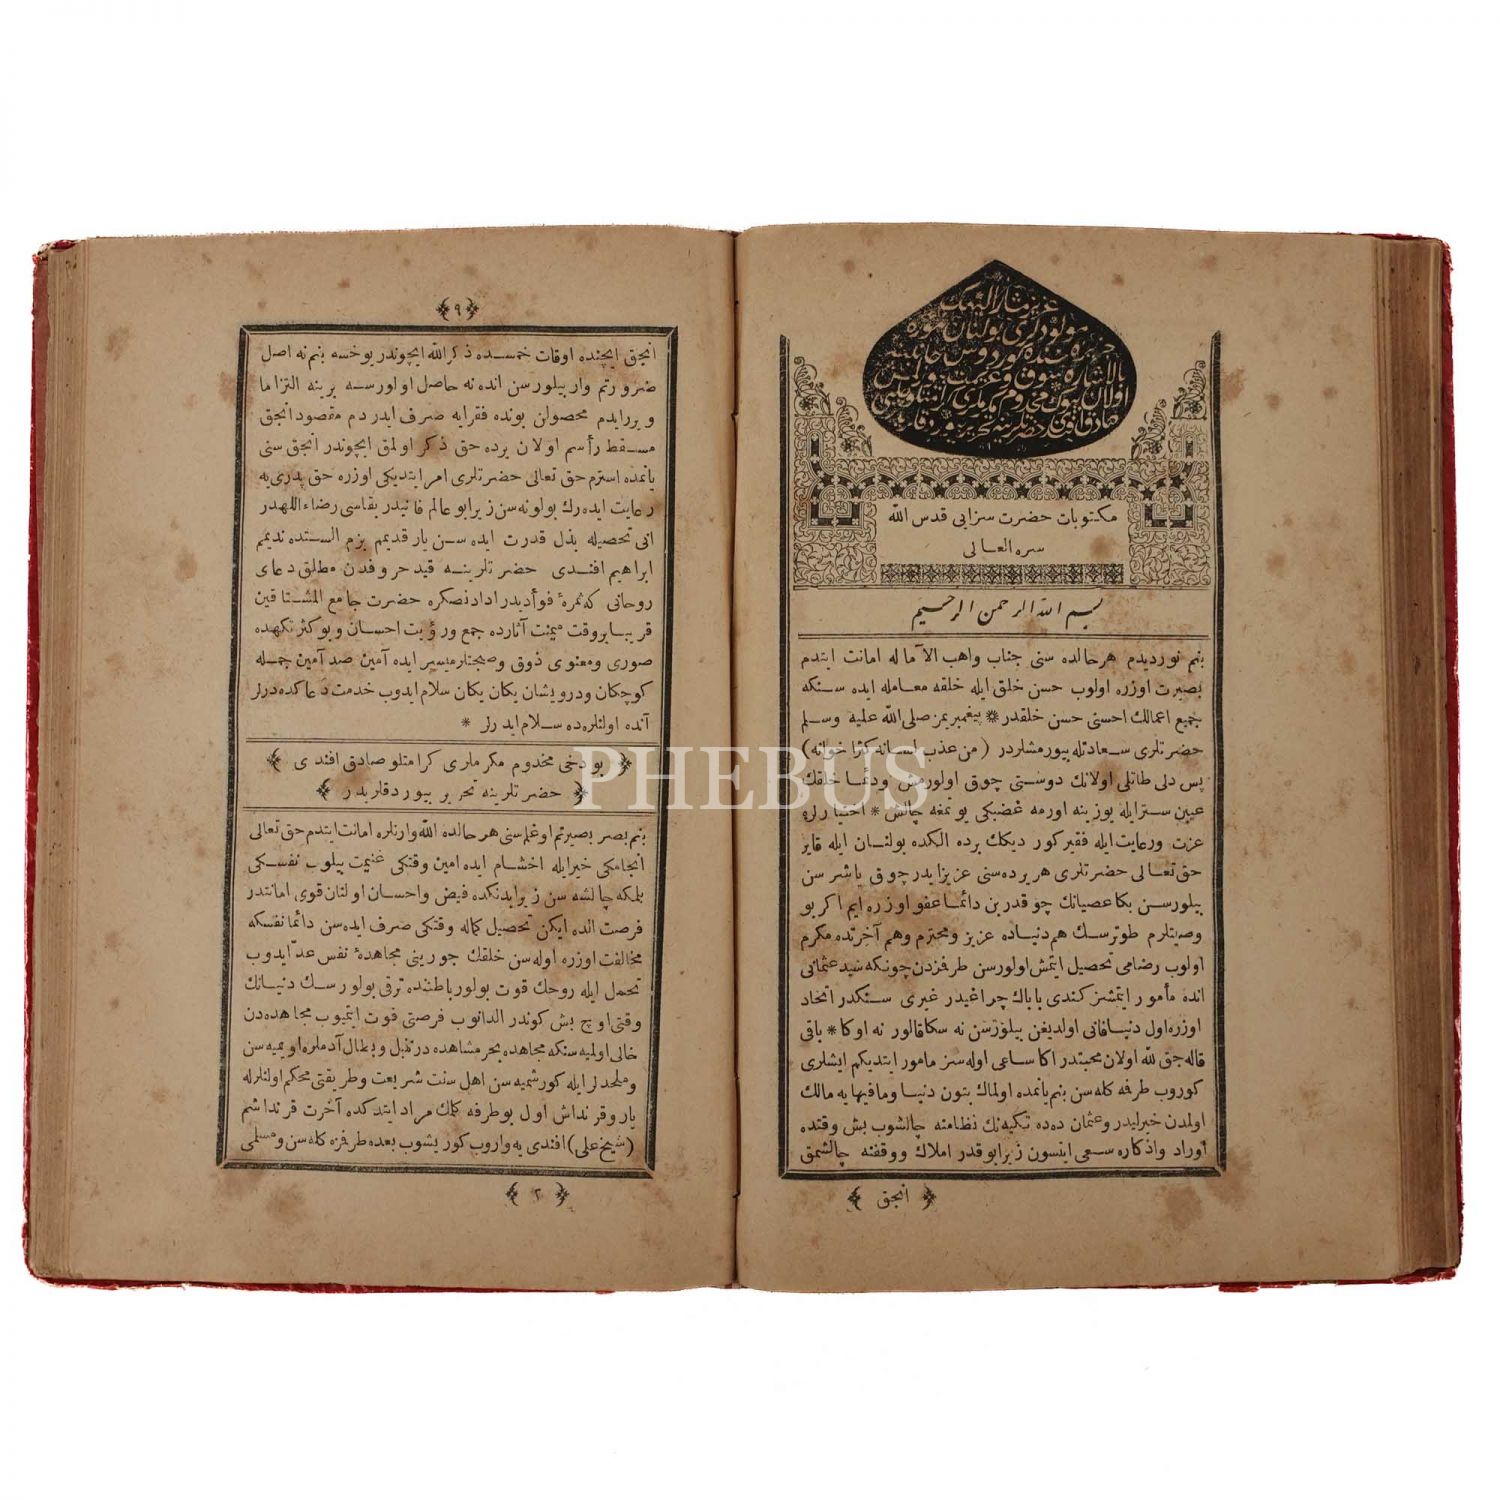 مكتوبات حضرت سزايى قدس الله
سره العالى
بسم الله الرحمن الرحيم
بنم نورديدم هرحالده سنى جناب واهب الآماله امانت ايتدم
بصيرت اوزره اولوب حسن خلق ايله خلقه معامله ايده سنكه
جميع اعمالك احسنى حسن خلقدر * پيغمبريمز صلى الله عليه وسلم
حضرتلرى سعادتله بيورمشلردر (من عذب لسانه كثرا خوانه)
پس دلى طاتلى اولانك دوستى چوق اولورمش ودائما خلقك
عيبن سترايله يوزينه اورمه غضبكى يوتمغه چالش * اختيارلره
عزت ورعايت ايله فقير كورديكك يرده الكده بولنان ايله قاير
حق تعالى حضرتلرى هر يرده سنى عزيز ايدر چوق ياشرسن
بيلورسن بكا عصيانك چوقدر بن دائما عفو اوزره ايم اكر بو
وصيتلرم طوترسك هم دنياده عزيز ومحترم وهم آخرتده مكرم
اولوب رضامى تحصيل ايتمش اولورسن طرفزدن چونكه سيد عثمانى
انده مأمور ايتمشز كندى باباك چراغيدر غيرى سنكدر اتحاد
اوزره اول دنيا فانى اولديغن بيلورسن نه سكا قالور نه اوكا * باقى
قاله جق لله اولان محبتدر اكا ساعى اوله سز مامور ايتديكم ايشلرى
كوروب طرفه كله سن بنم يانمده اولماك بتون دنيا ومافيها يه مالك
اولدن خيرليدر وعثمان دده تكيه نك نظامنه چالشوب بش وقتده
اوراد واذكاره سعى ايتسون زيرا بوقدر املاك ووقفنه چالشمق
انجق
٩
انجق ايچنده اوقات خمسده ذكر الله ايچوندر يوخسه بنم نه اصل
ضرورتم وار بيلورسن انده نه حاصل اولورسه برينه التزاما
ويررايدم محصولن بونده فقرايه صرف ايدردم مقصود انجق
مسقط رأسم اولان يرده حق ذكر اولمق ايچوندر انجق سنى
يانمده استرم حق تعالى حضرتلرى امر ايتديكى اوزره حق پدرى يه
رعايت ايده رك بولونه سن زيرا بو عالم فانيدر بقاسى رضاء اللهدر
انى تحصيله بذل قدرت ايده سن يار قديمم بزم الستده نديمم
ابراهيم افندى حضرتلرينه قيد حروفدن مطلق دعاى
روحانى كه ثمرهٔ فوأديدر ادادنصكره حضرت جامع المشتاقين
قريبا بروقت ميمنت آثارده جمع ورؤيت احسان وبو كثرتكهده
صورى ومعنوى ذوق وصحبتلر ميسر ايده آمين صد آمين جمله
كوچكان ودرويشان يكان يكان سلام ايدوب خدمت دعاكده درلر
آنده اولنلره ده سلام ايدرلر *
بو دخى مخدوم مكرملرى كرامتلو صادق افندى
حضرتلرينه تحرير بيوردقلريدر
بنم بصر بصيرتم اوغلم سنى هرحالده الله وارنلره امانت ايتدم حق تعالى
انجامكى خير ايله اخشام ايده امين وقتكى غنيمت بيلوب نفسكى
بلمكه چالشه سن زيرا بدنكده فيض واحسان اولنان قوى امانتدر
فرصت الده ايكن تحصيل كماله وقتكى صرف ايده سن دائما نفسكه
مخالفت اوزره اوله سن خلقك جورينى مجاهدهٔ نفس عد ايدوب
تحمل ايله روحك قوت بولور باطنده ترقى بولورسك دنيانك
وقتى اوچ بش كوندر الدانوب فرصتى فوت ايتميوب مجاهده دن
خالى اولميه سنكه مجاهده بحر مشاهده در تنبل وبطال آدملره اويميه سن
وملحدلر ايله كورشميه سن اهل سنت شريعت وطريقتى محكم اولنلرله
يار وقرنداش اول بوطرفه كلمك مراد ايتدكده آخرت قرنداشم
(شيخ على) افندى يه واروب كوريشوب بعده طرفزه كله سن ومسلمى
٢
PHEBUS